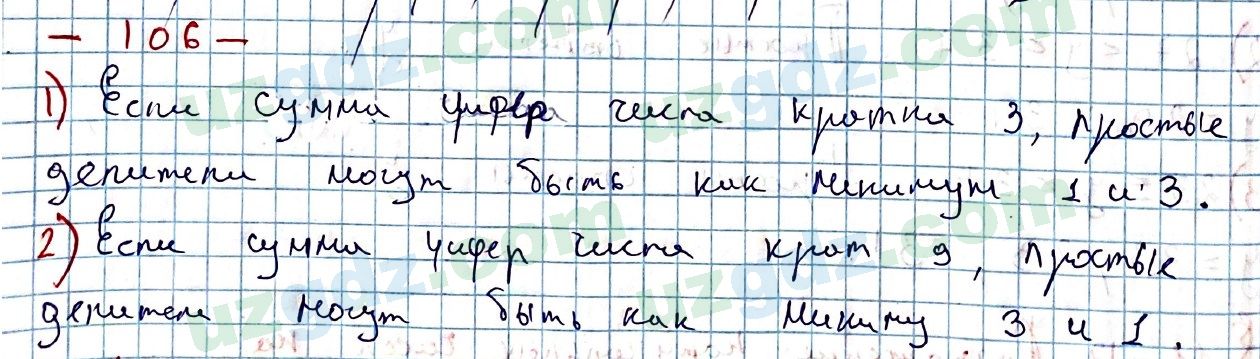 - 106 -
1) Если сумма цифер числа кратна 3, простые
делители могут быть как минимум 1 и 3.
2) Если сумма цифер числа крат 9, простые
делители могут быть как миниму 3 и 1.
uzgdz.com
uzgdz.com
uzgdz.com
uzgdz.com